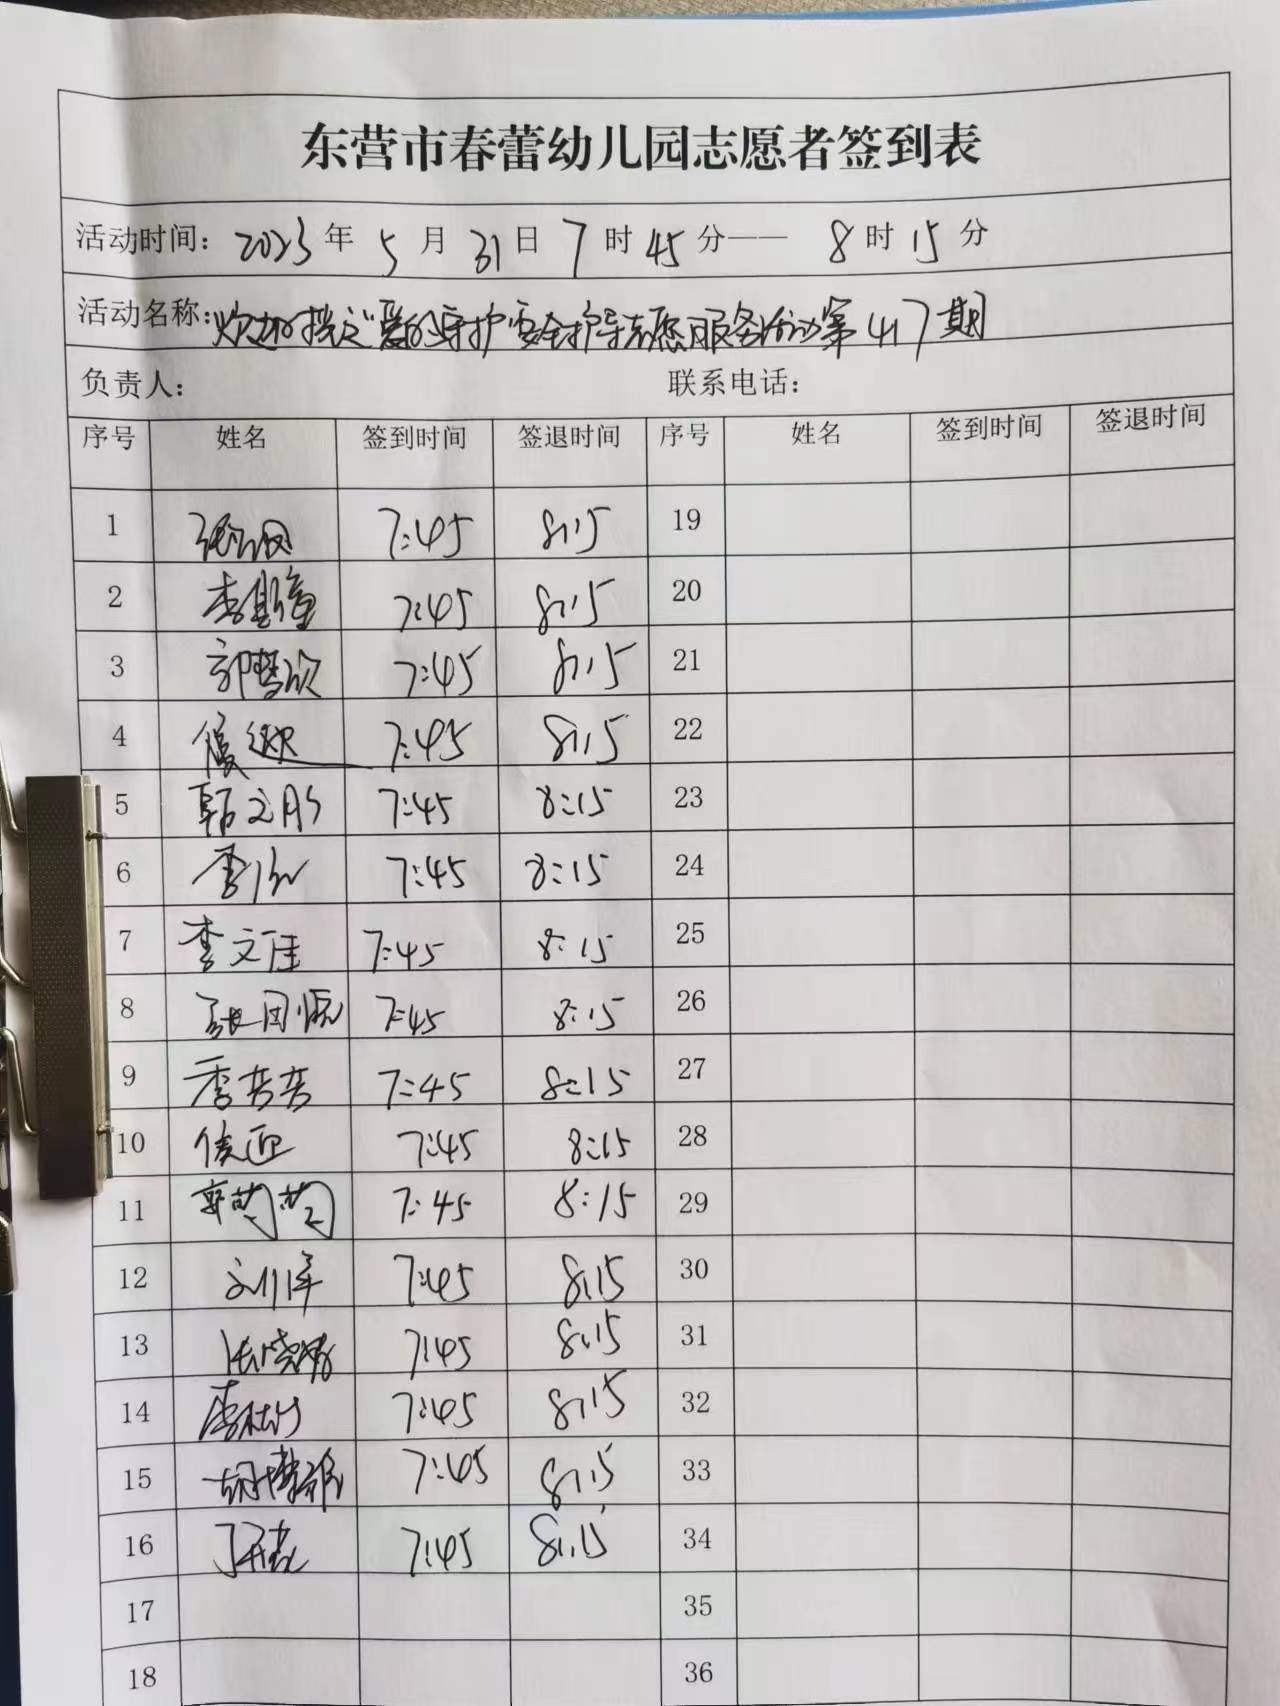 东营市春蕾幼儿园志愿者签到表
活动时间: 2023 年 5 月 31 日 7 时 45 分—— 8 时 15 分
活动名称: "爱的守护"安全护导志愿服务活动第417期
负责人: 联系电话:
序号 姓名 签到时间 签退时间 序号 姓名 签到时间 签退时间
1 7:45 8:15 19
2 7:45 8:15 20
3 郭慧欣 7:45 8:15 21
4 7:45 8:15 22
5 韩文彤 7:45 8:15 23
6 7:45 8:15 24
7 李文佳 7:45 8:15 25
8 7:45 8:15 26
9 季芳芳 7:45 8:15 27
10 侯迎 7:45 8:15 28
11 7:45 8:15 29
12 7:45 8:15 30
13 7:45 8:15 31
14 7:45 8:15 32
15 7:45 8:15 33
16 7:45 8:15 34
17 35
18 36